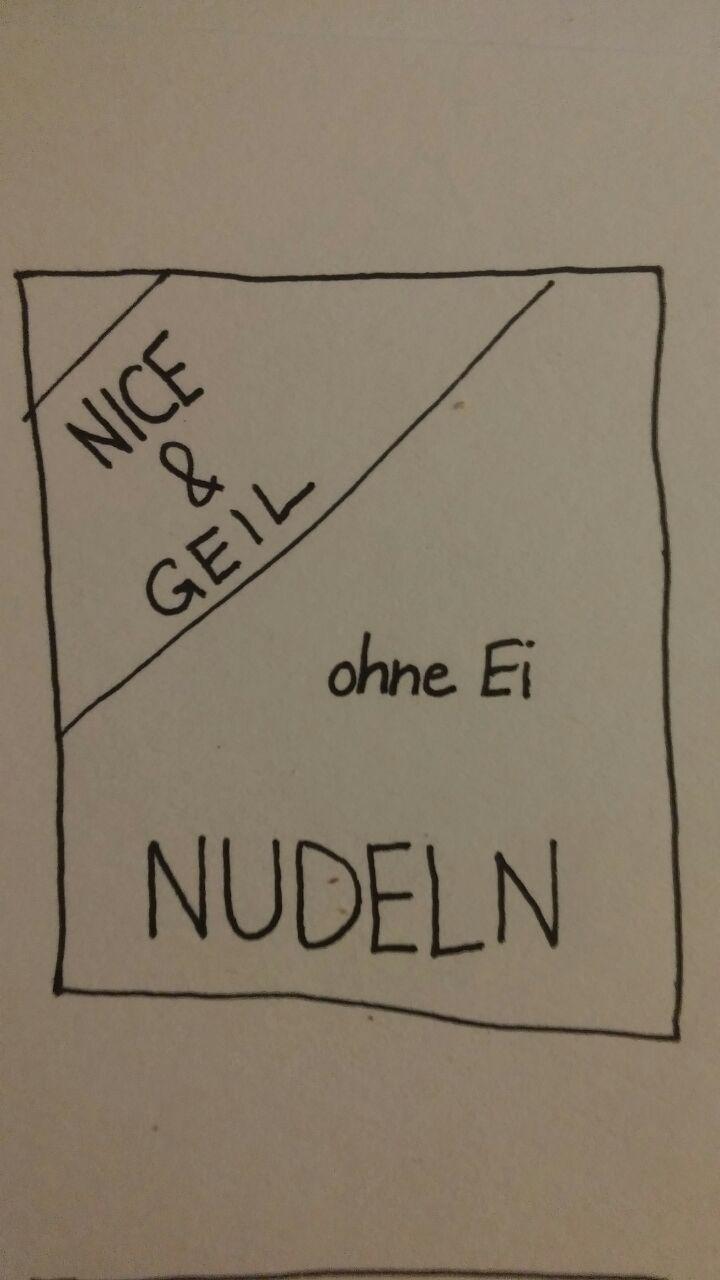 NICE
&
GEIL
ohne Ei
NUDELN